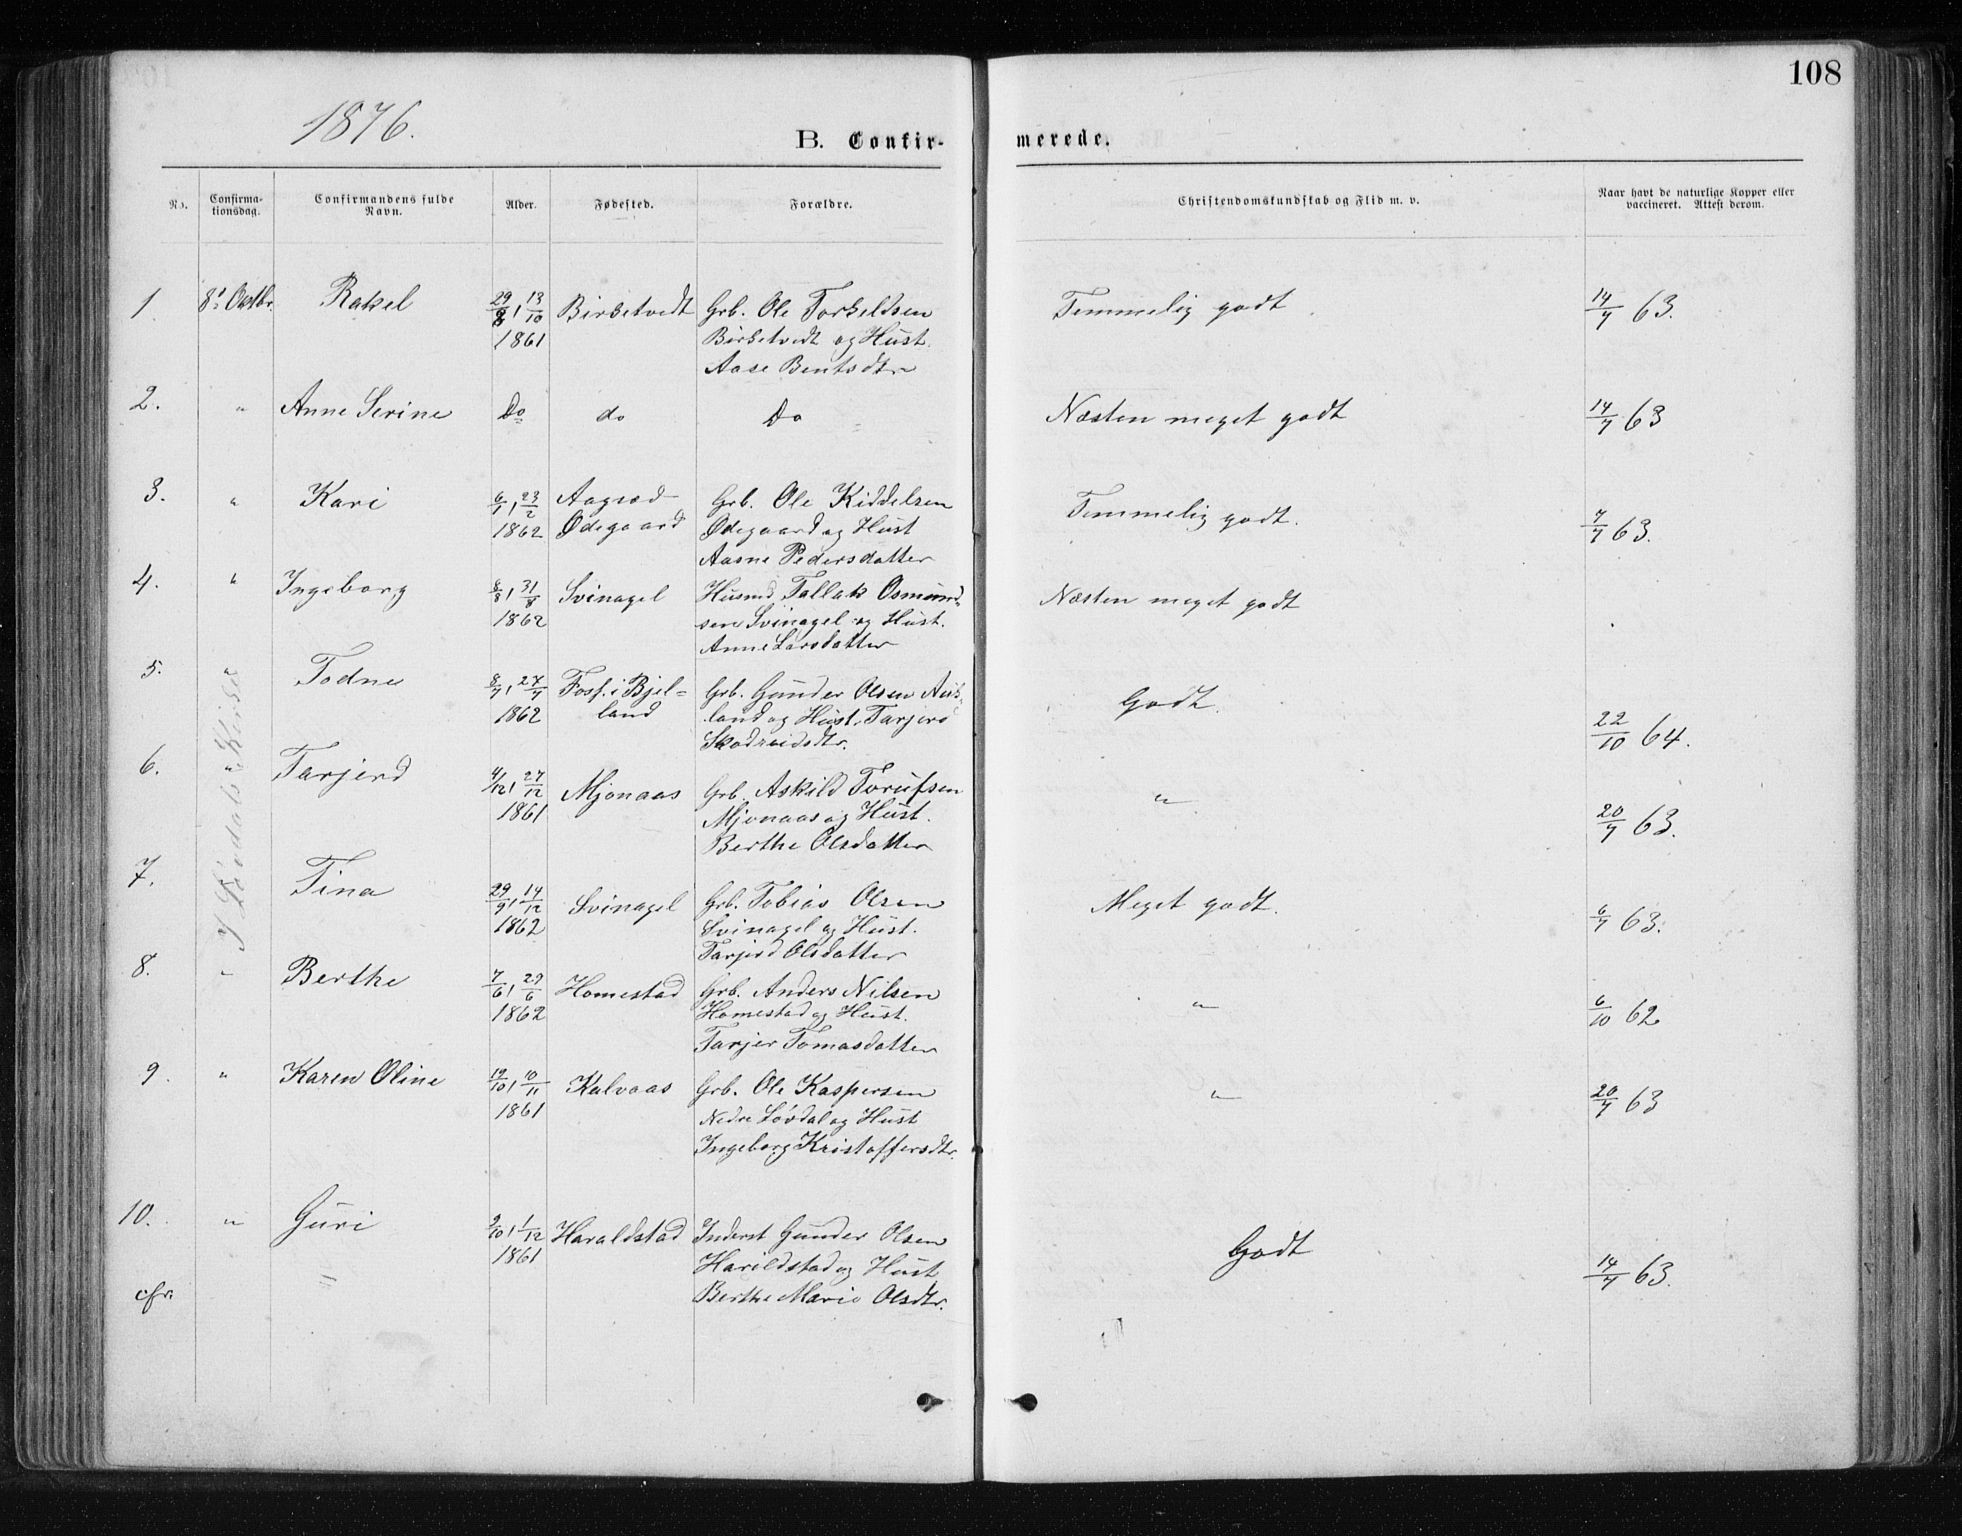 108
1876.
B. Confir- merede.
No. Confirma- tionsdag. Confirmandens fulde Navn. Alder. Fødested. Forældre. Christendomskundskab og Flid m. v. Naar havt de naturlige Kopper eller vaccineret. Attest derom.
1. 8' Octbr. Rakel 29/8, 13/10 Birketvedt Grb. Ole Torkeldsen Temmelig godt 14/7 63.
1861 Birketvedt og Hust.
Aase Bentsdtr
2. " Anne Serine Do do Do Næsten meget godt 14/7 63
3. " Kari 6/1, 23/2 Aagræd- Grb. Ole Kiddelsen Temmelig godt. 7/7 63.
1862 Ødegaard Ødegaard og Hust
Aasne Pedersdatter
4. " Ingeborg 8/8, 31/8 Svinagel Husmd Tallak Osmund- Næsten meget godt
1862 sen Svinagel og Hust.
Anne Larsdatter
5. " Todne 8/7, 27/7 Fosf. i Bjel- Grb. Gunder Olsen Aus- Godt. 22/10 64.
1862 land land og Hust. Tarjerd
6. " Tarjerd 4/12, 27/12 Mjonaas Grb. Askild Torufsen " 20/7 63.
1861 Mjonaas og Hust.
Berthe Olsdatter
7. Tina 29/9, 14/12 Svinagel Grb. Tobias Olsen Meget godt. 6/7 63.
1862 Svinagel og Hust.
Tarjerd Olsdatter
8. " Berthe 7/6, 29/6 Homestad Grb. Anders Nilsen " 6/10 62
1862 Homestad og Hust.
Tarjer Tomasdatter
9. " Karen Oline 19/10, 10/11 Kalvaas Grb. Ole Kaspersen " 20/7 63
1861 Nedre Løvdal og Hust
Ingeborg Kristoffersdtr.
10. " Guri 9/10, 1/12 Haraldstad Inderst Gunder Olsen Godt 14/7 63.
1861 Harildstad og Hust
cfr. " Berthe Marie Olsdtr.
I Løvdals Kirke